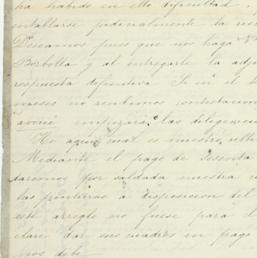 ha habido en ello dificultad.
entablarse judicialmente la
Deseamos pues que nos haga
Borbolla y al entregarle la adj
respuesta definitiva. Si en el
meses no recibimos contestacion
empezará las diligencias
He aquí cual es nuestro ulti
Mediante el pago de sesenta
daremos por saldada nuestra
las pinturas a disposicion del
este arreglo no fuese para el
claro dar sus cuadros en pago
nos debe